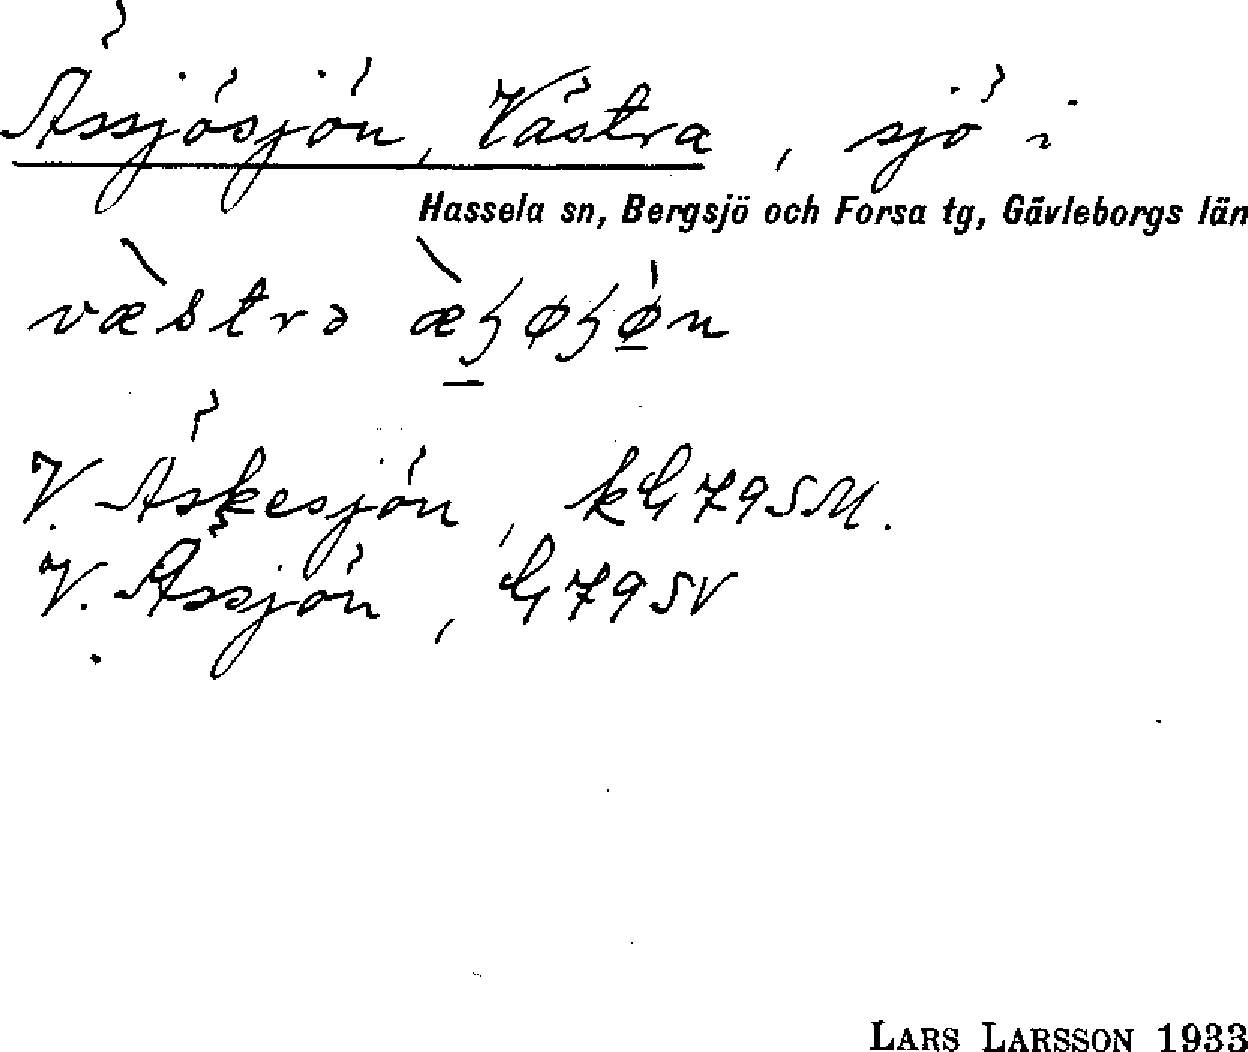 Ässjösjön, Västra, sjö i
Hassela sn, Bergsjö och Forsa tg, Gävleborgs län
V. Äskesjön, kG 79 SM.
V. Ässjön, G 79 SV
LARS LARSSON 1933